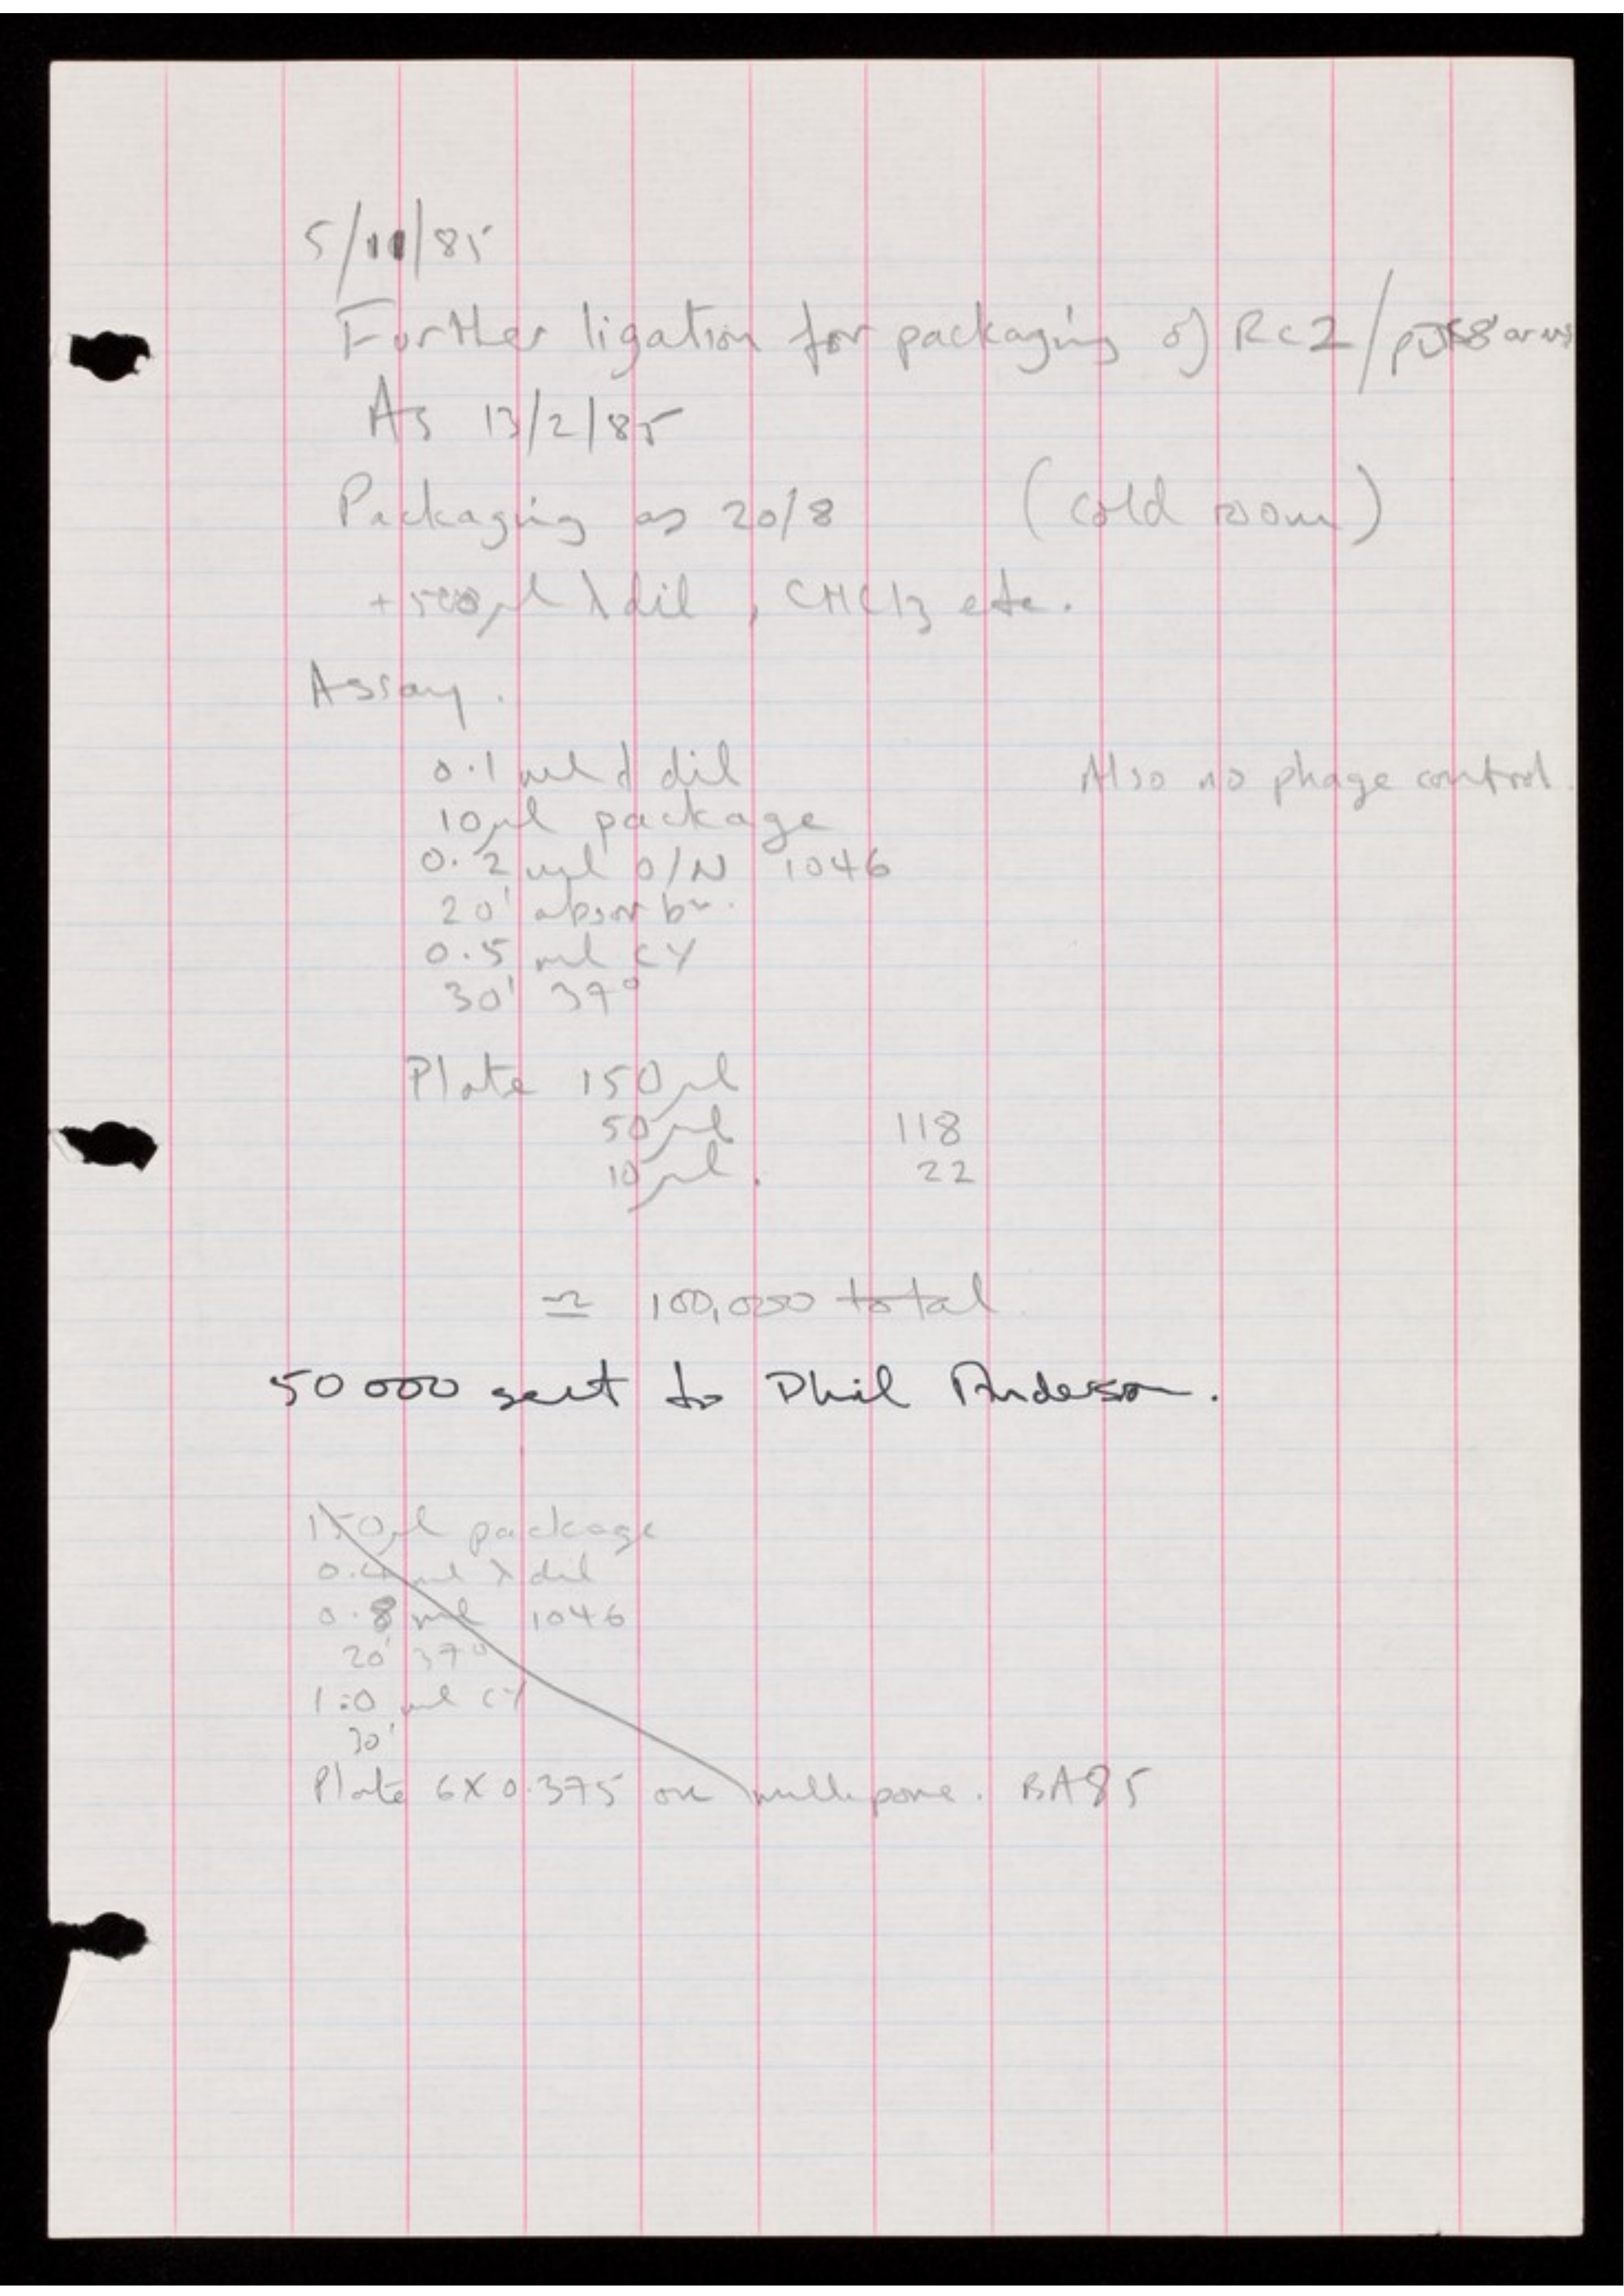 5/11/85
Further ligation for packaging of Rc2/pJB8 arms
As 13/2/85
Packaging as 20/8 (cold room)
+500µl λ dil, CHCl3 etc.
Assay.
0.1 ml λ dil Also no phage control.
10µl package
0.2 ml O/N 1046
20' absorbn.
0.5 ml CY
30' 37°
Plate 150µl
50µl 118
10µl. 22
≃ 100,000 total
50000 sent to Phil Anderson.
150µl package
0.4 ml λ dil
0.8 ml 1046
20' 37°
1.0 ml CY
30'
Plate 6 X 0.375 on millipore. BA85